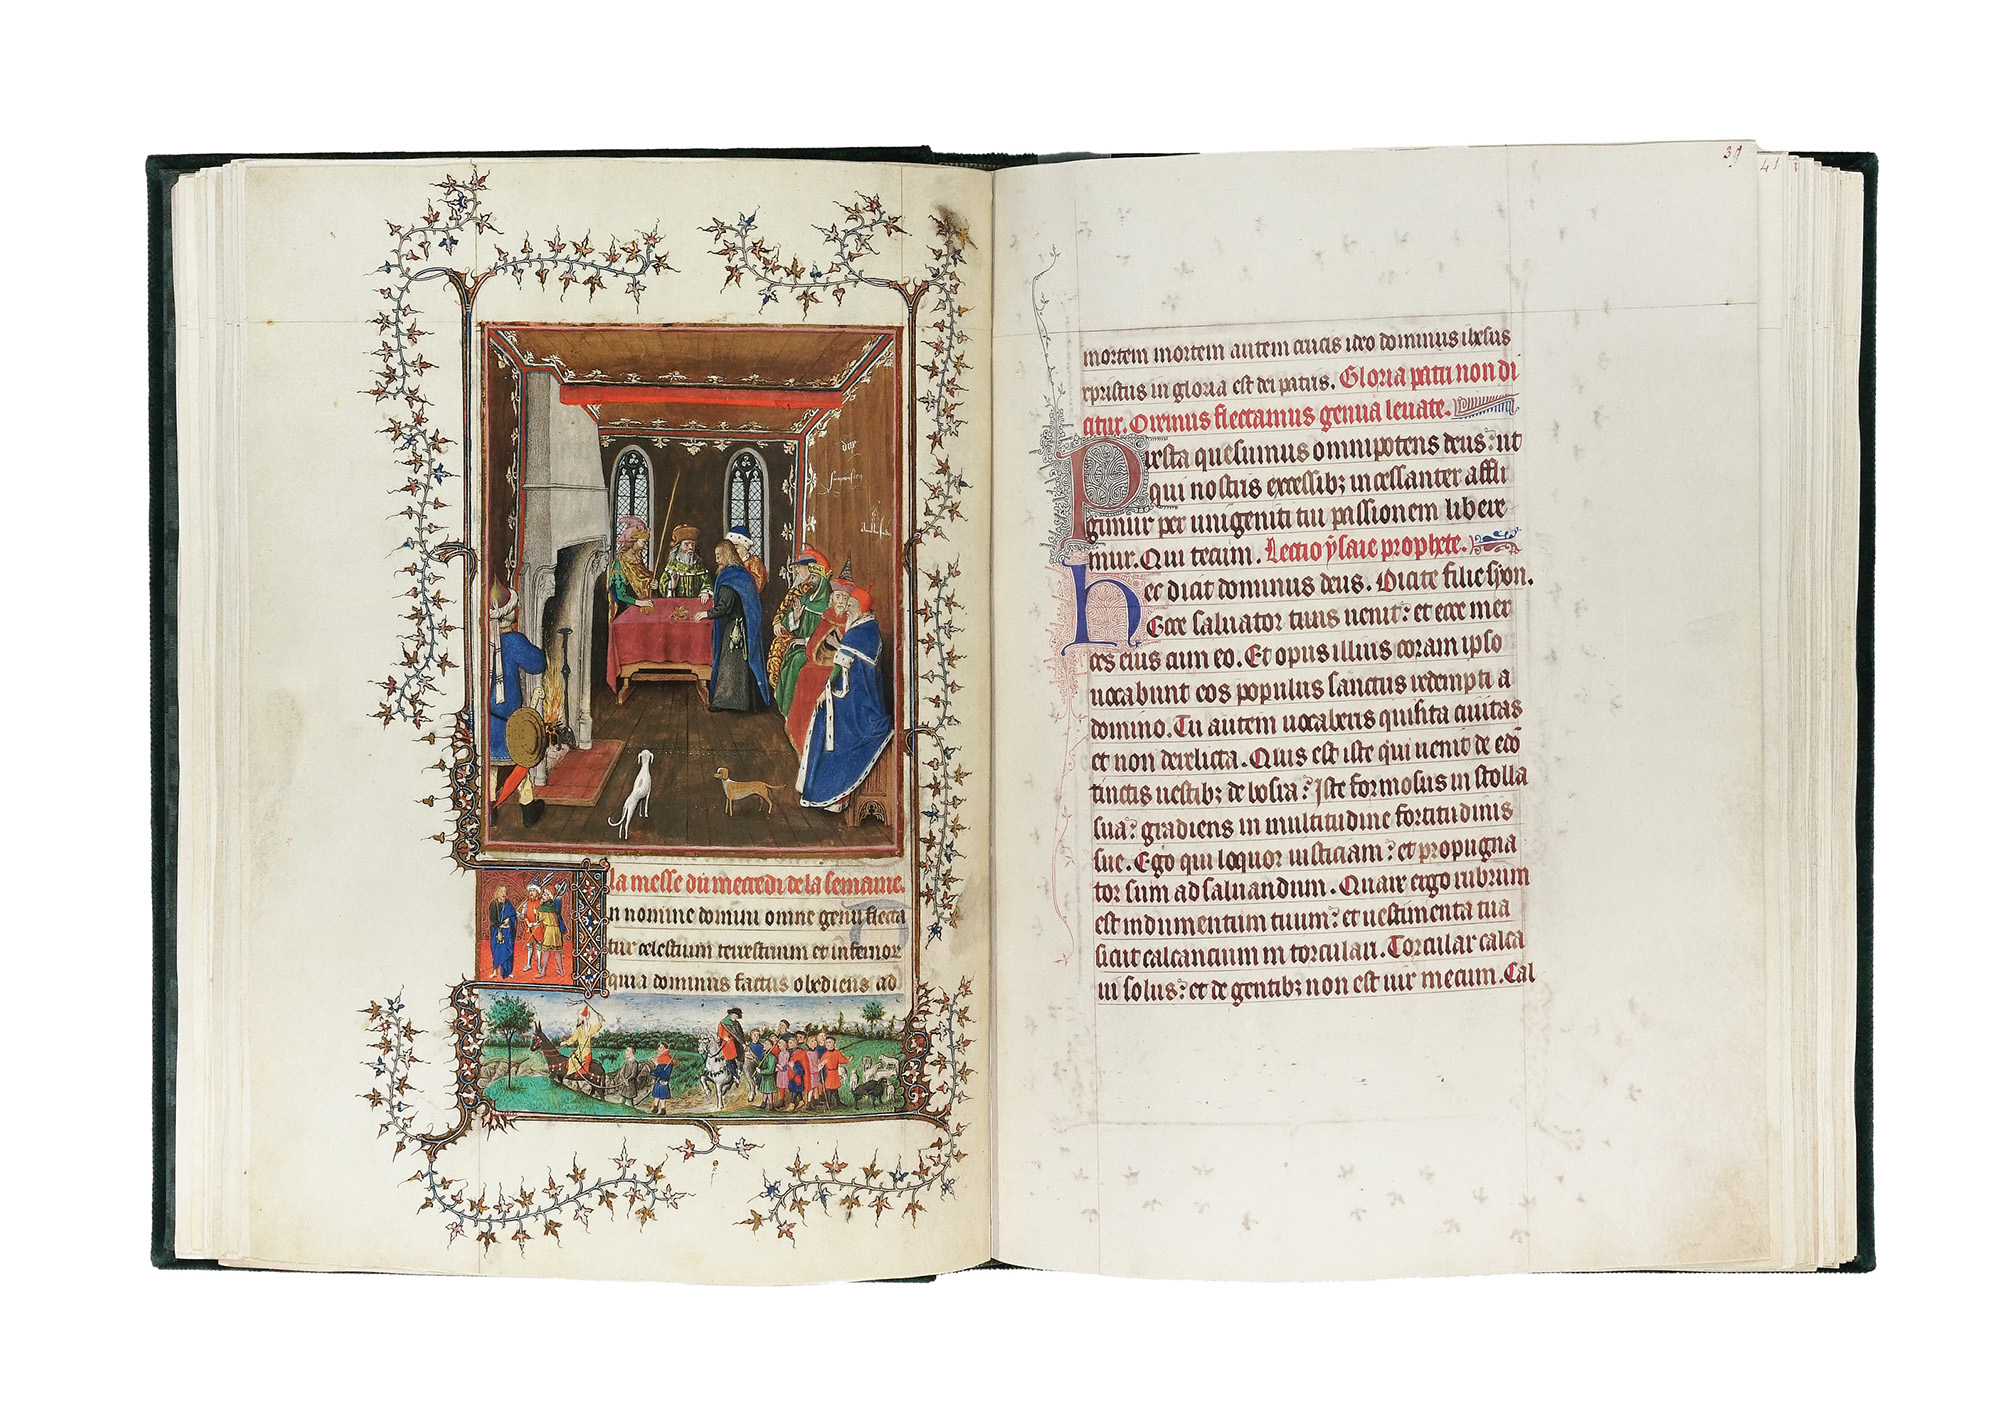 la messe du mecredi de la semaine.
n nomine domini omne genu flecta
tur celestium terrestrium et infernor
quia dominus factus obediens ad
39
41
mortem mortem autem crucis ideo dominus ihesus
xpristus in gloria est dei patris. Gloria patri non di
citur. Oremus flectamus genua levate.
Presta quesumus omnipotens deus: ut
qui nostris excessibz incessanter affli
gimur per unigeniti tui passionem libere
mur. Qui tecum. Lectio ysaie prophete.
hec dicit dominus deus. Dicite filie syon.
Ecce salvator tuus venit: et ecce mer
ces eius cum eo. Et opus illius coram ipso
vocabunt eos populus sanctus redempti a
domino. Tu autem vocaberis quisita civitas
et non derelicta. Quis est iste qui venit de edō
tinctis vestibz de bosra? Iste formosus in stolla
sua: gradiens in multitudine fortitudinis
sue. Ego qui loquor iusticiam: et propugna
tor sum ad salvandum. Quare ergo rubrum
est indumentum tuum: et vestimenta tua
sicut calcancium in torculari. Torcular calca
vi solus: et de gentibz non est vir mecum. Cal